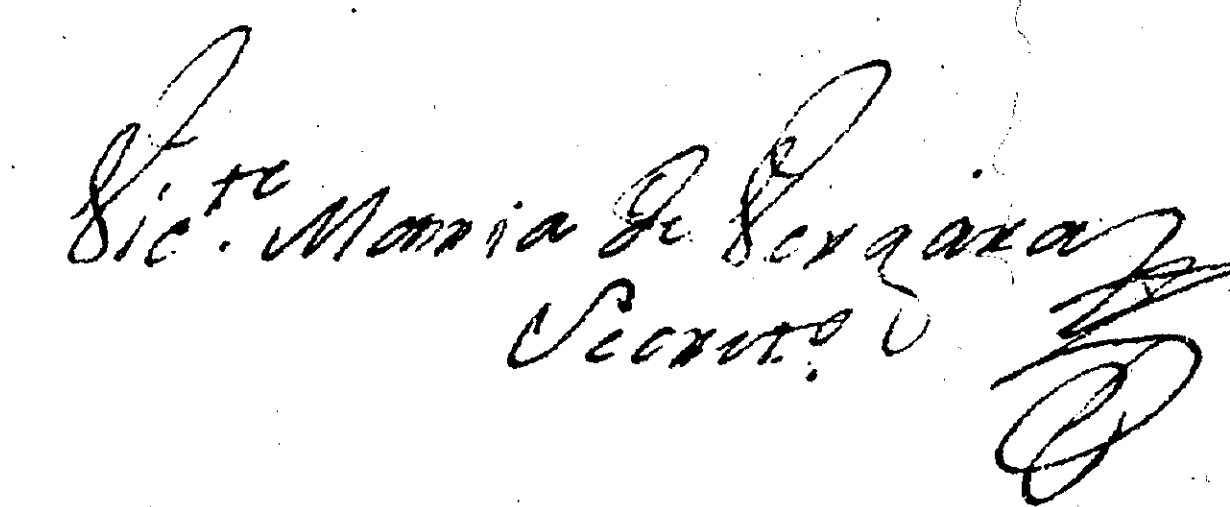 Vic.te Maria de Vergara
Secret.o